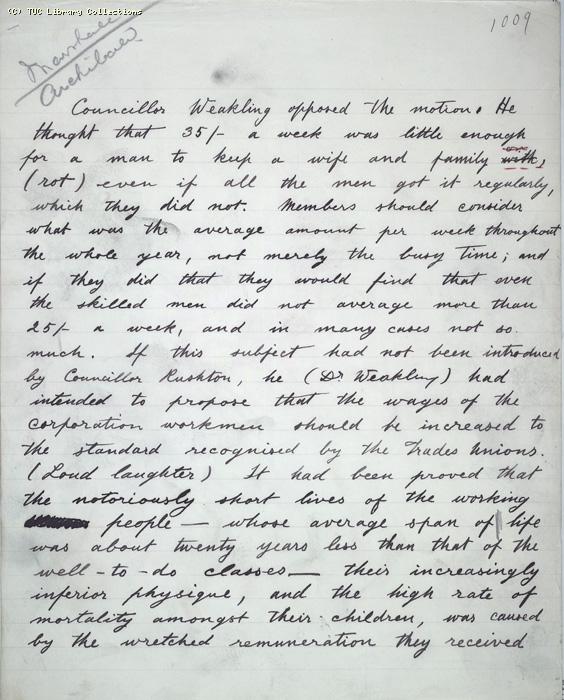 (C) TUC Library Collections
1009
Archibald
Councillor Weakling opposed the motion. He
thought that 35/- a week was little enough
for a man to keep a wife and family with,
(rot) even if all the men got it regularly,
which they did not. Members should consider
what was the average amount per week throughout
the whole year, not merely the busy time; and
if they did that they would find that even
the skilled men did not average more than
25/- a week, and in many cases not so
much. If this subject had not been introduced
by Councillor Rushton, he (Dr. Weakling) had
intended to propose that the wages of the
corporation workmen should be increased to
the standard recognised by the Trades Unions.
(Loud laughter) It had been proved that
the notoriously short lives of the working
people — whose average span of life
was about twenty years less than that of the
well-to-do classes — their increasingly
inferior physique, and the high rate of
mortality amongst their children, was caused
by the wretched remuneration they received